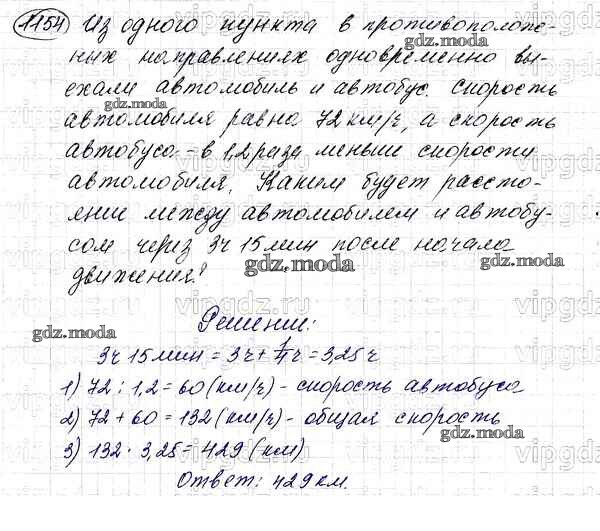 1154 Из одного пункта в противополож-
ных направлениях одновременно вы-
gdz.moda
ехали автомобиль и автобус. Скорость
gdz.moda
автомобиля равна 72 км/ч, а скорость
автобуса - в 1,2 раза меньше скорости
автомобиля. Каким будет рассто-
яние между автомобилем и автобу-
сом через 3ч 15 мин после начала
движения?
gdz.moda
gdz.moda
Решение:
gdz.moda
3ч 15 мин = 3ч + 1/4 ч = 3,25 ч
1) 72 : 1,2 = 60 (км/ч) - скорость автобуса
2) 72 + 60 = 132 (км/ч) - общая скорость
gdz.moda
3) 132 · 3,25 = 429 (км)
Ответ: 429 км.